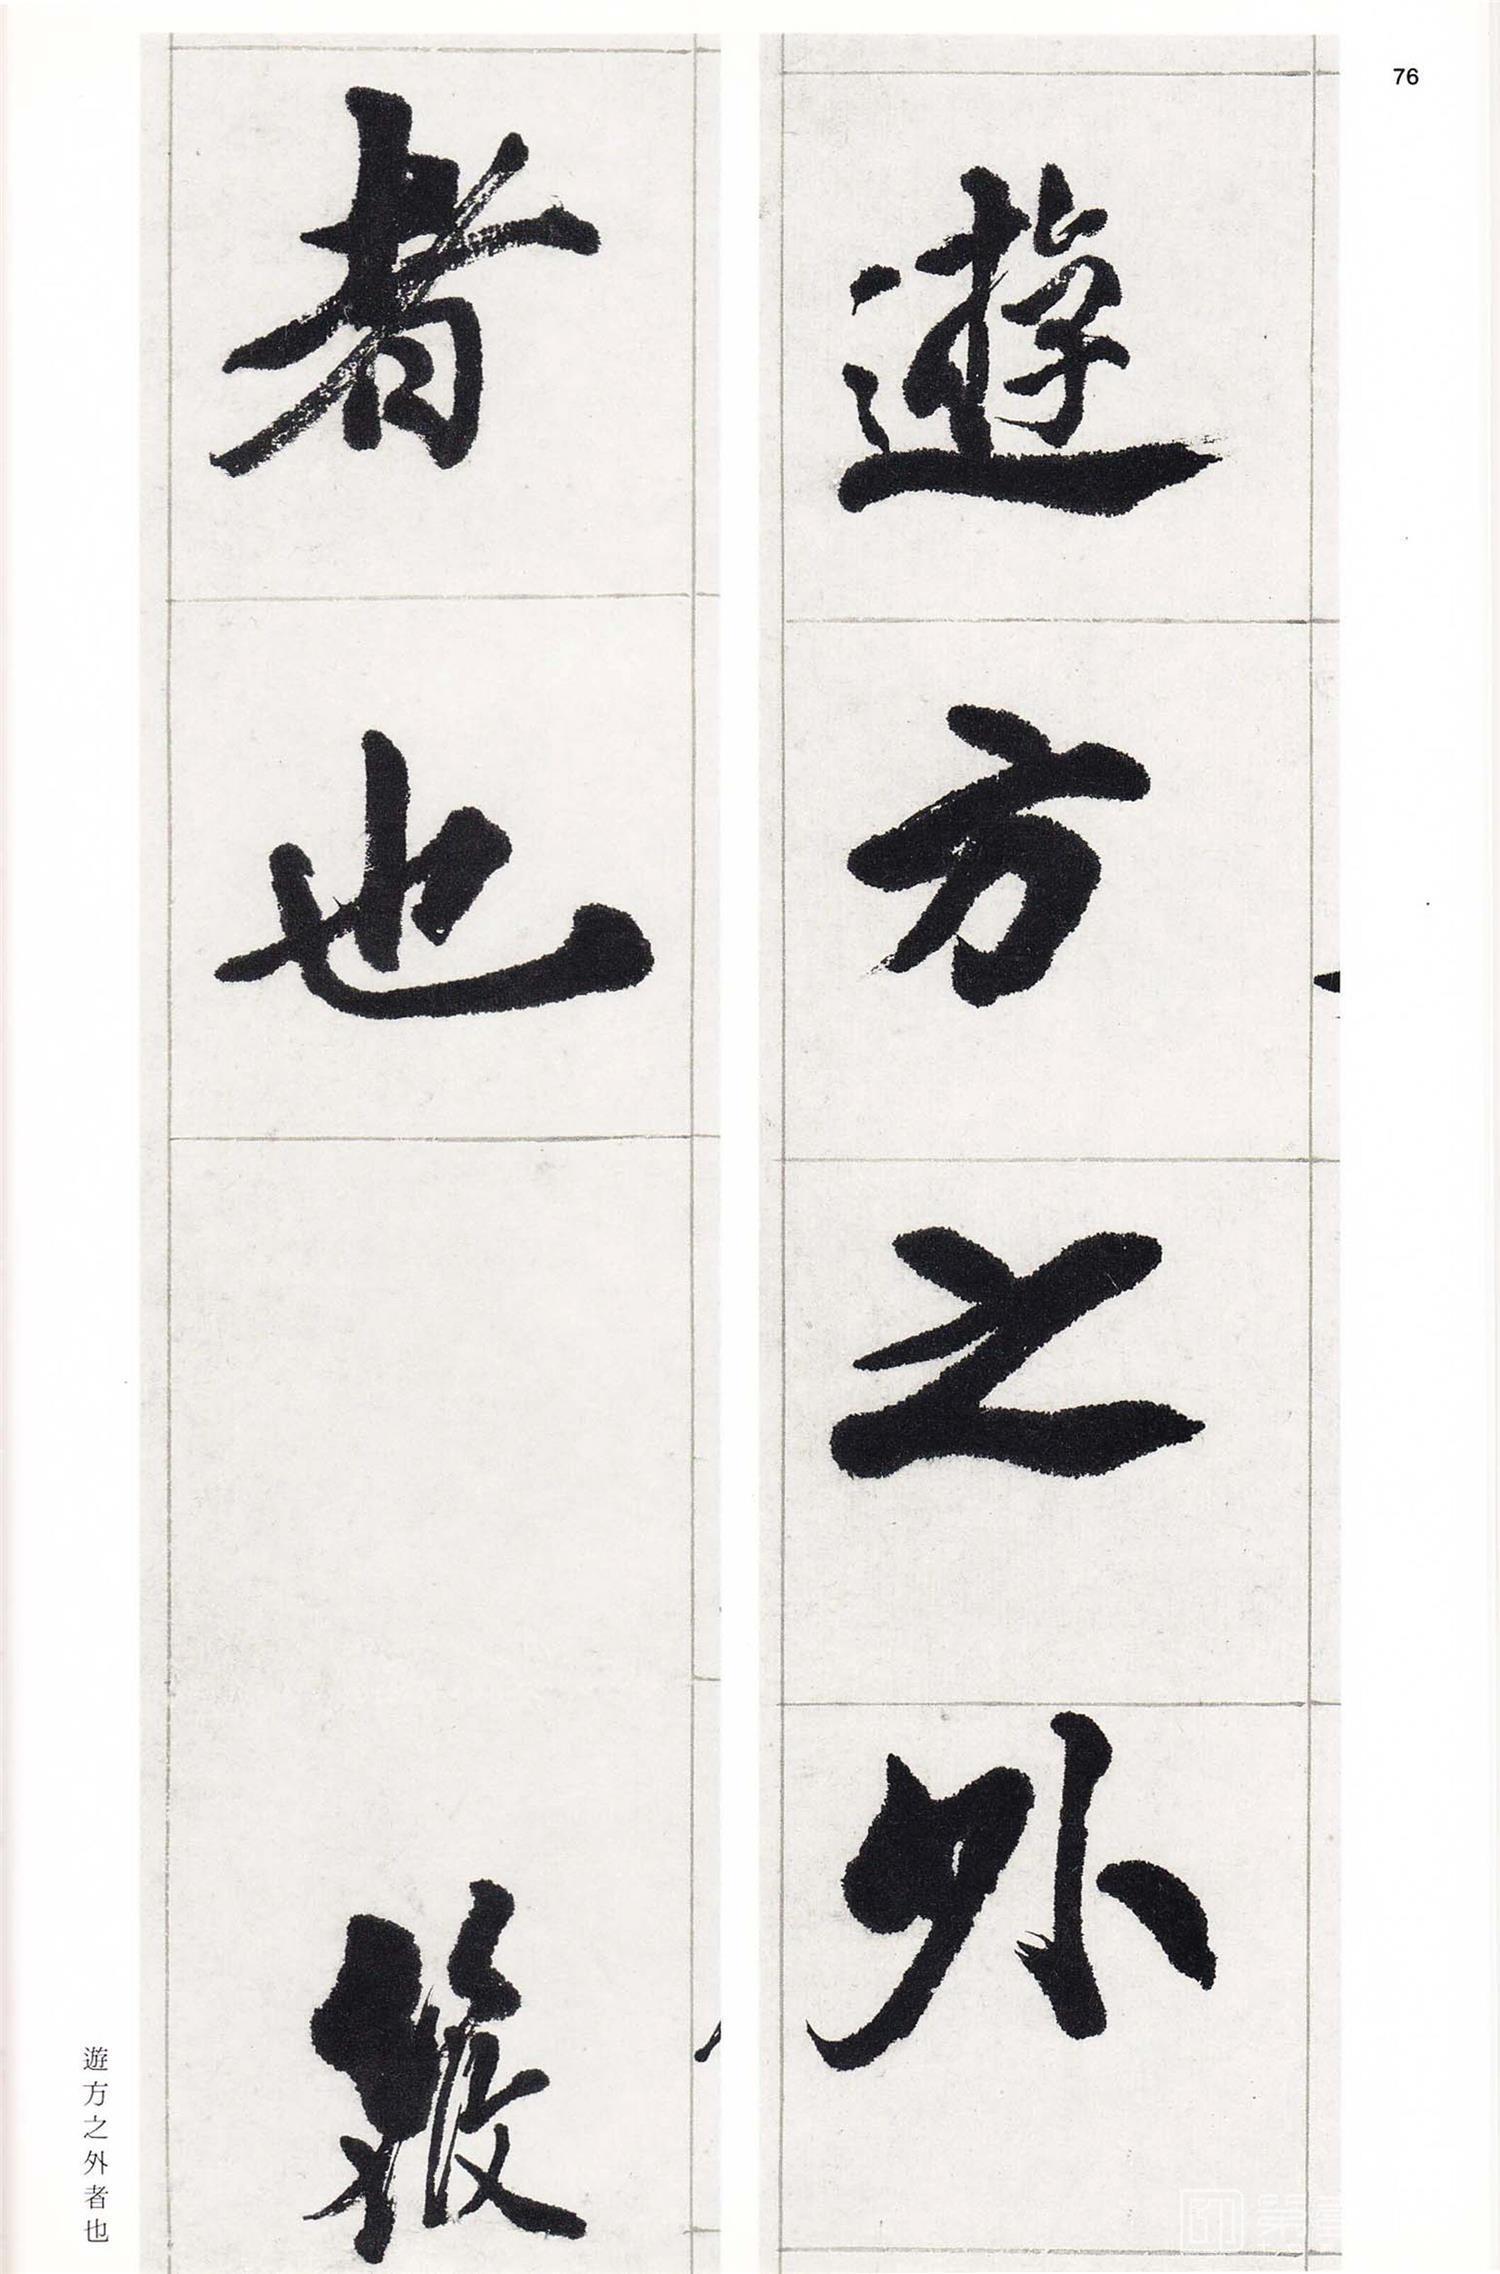 76
遊方之外
者也
遊方之外者也